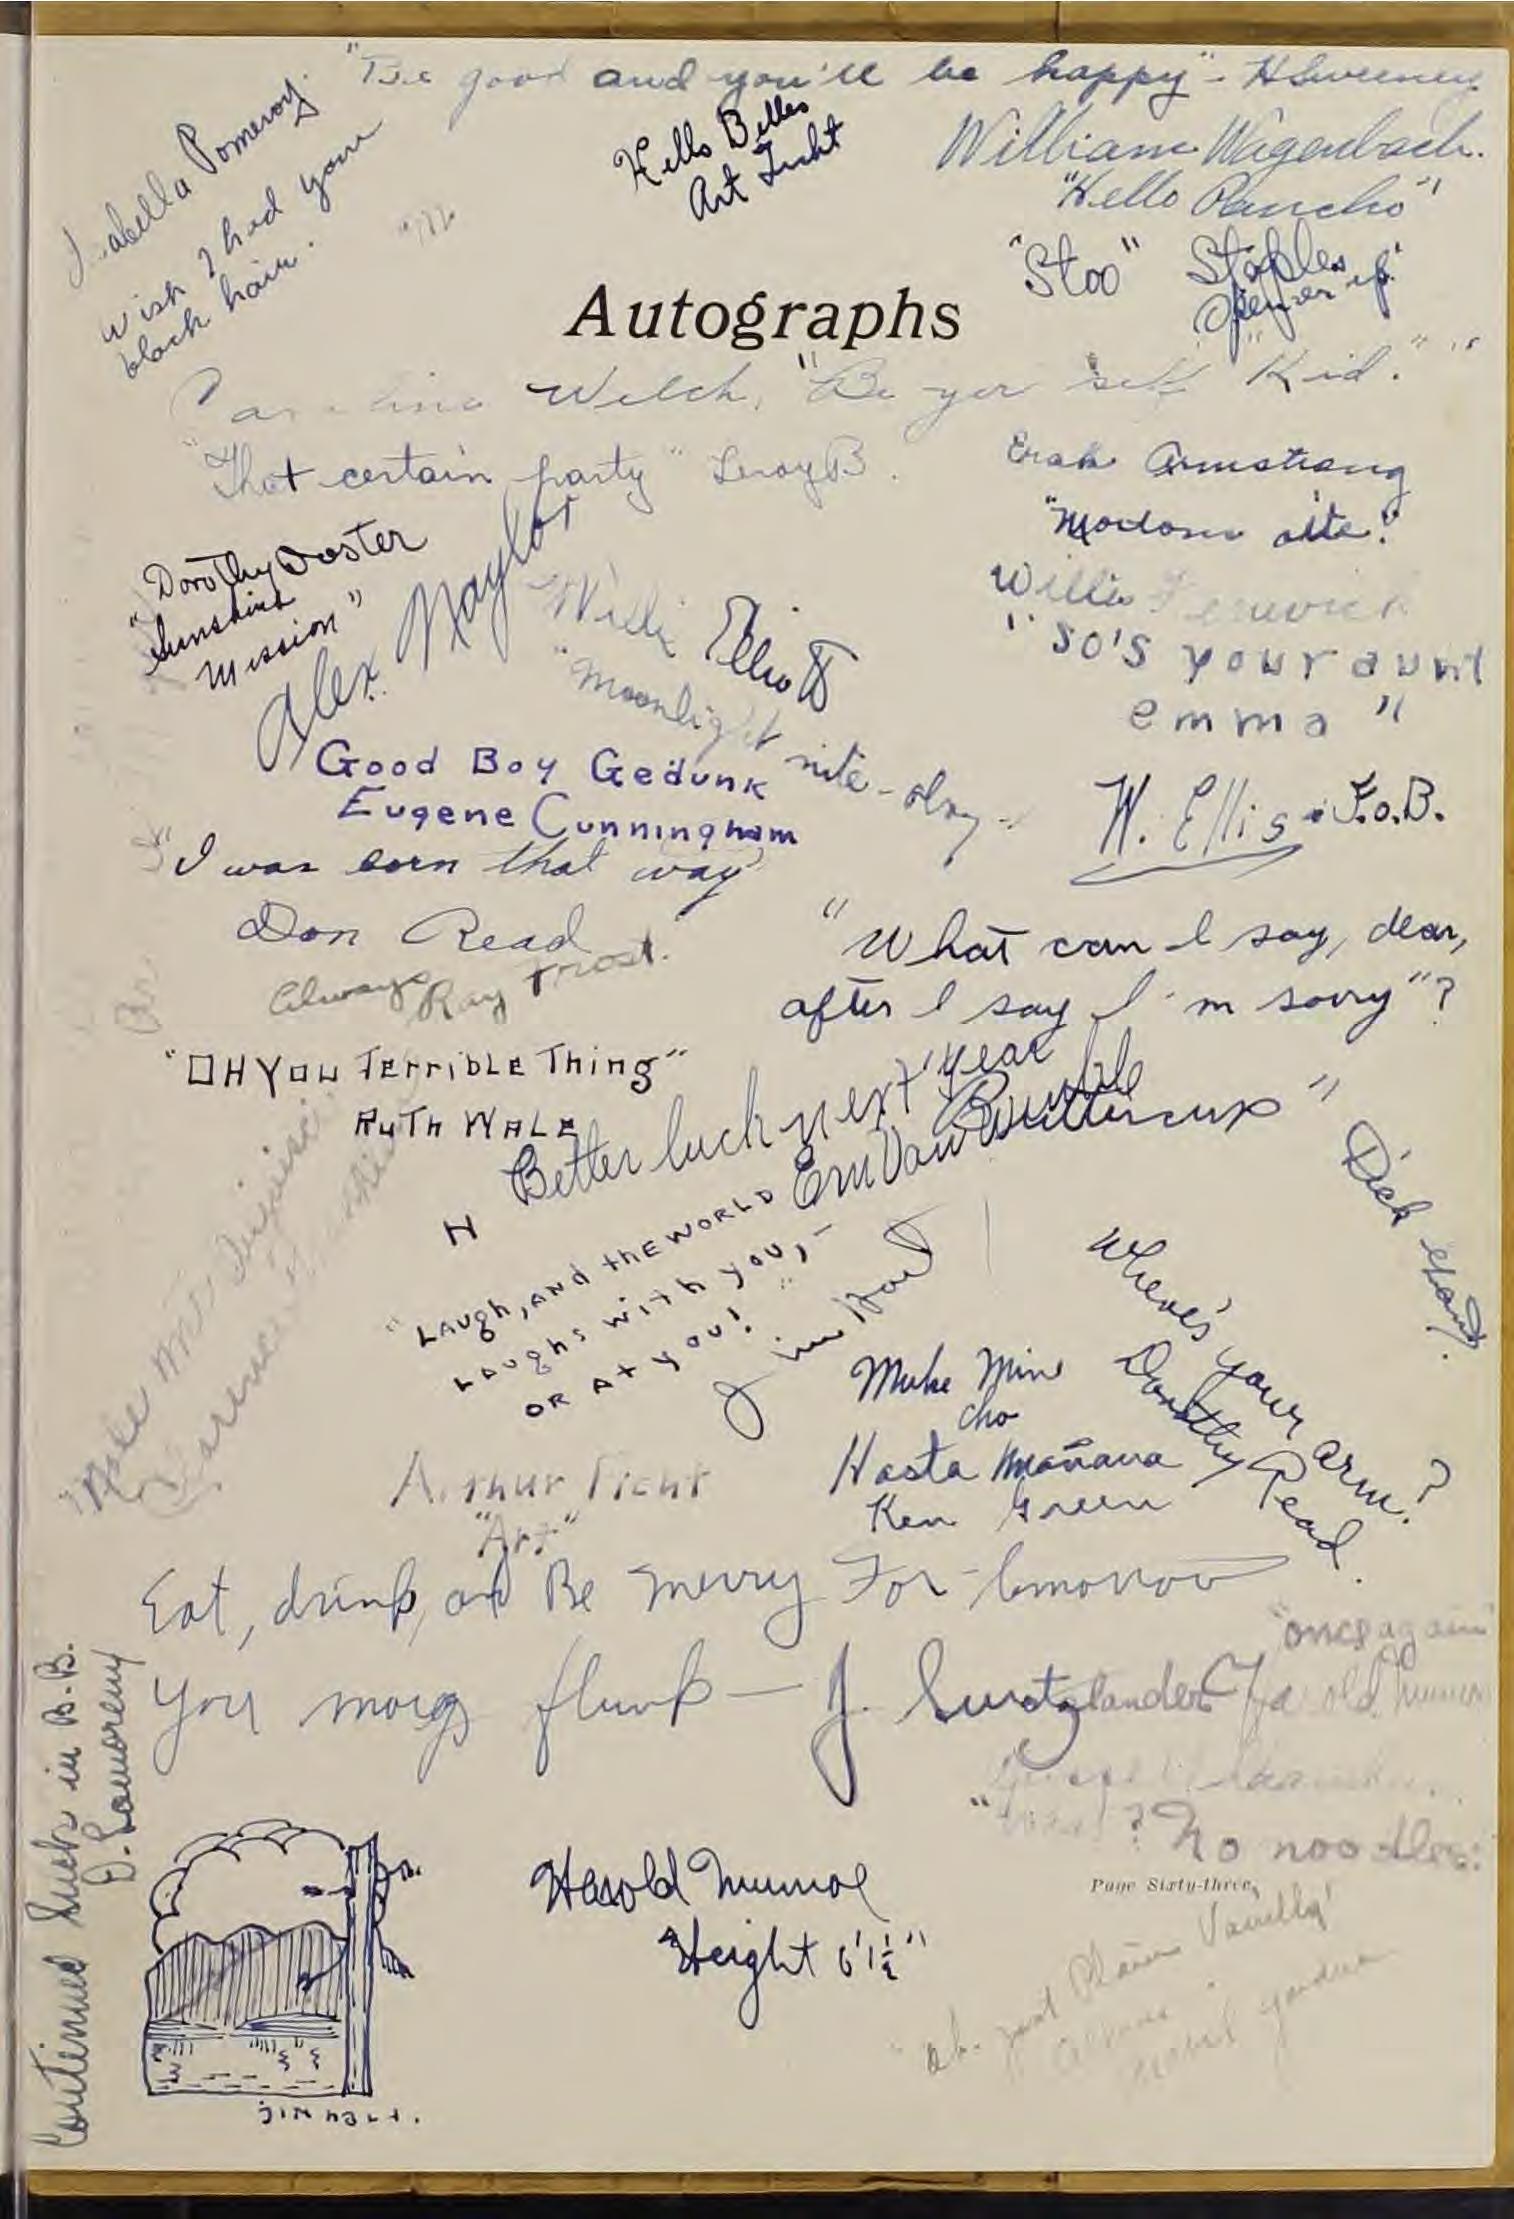 "Be good and you'll be happy" - H Sweeney
Isabella Pomeroy.
wish I had your
black hair.
Hello Belles
Art Ficht
William Wagenbach.
"Hello Pancho"
"Stoo" Staples
Autographs
Welch, "Be yer self Kid."
"That certain party" Leroy B.
Armstrong
Dorothy Doster
"Sunshine
Mission"
Alex Naylor
Willis Elliott
"Moonlight nite-
Willis
"So's your aunt
emma"
Good Boy Gedunk
Eugene Cunningham
W. Ellis. F.O.B.
"I was born that way"
Don Read
Always Ray Frost.
"What can I say, dear,
after I say I'm sorry"?
"Oh You Terrible Thing"
Ruth Wale
Better luck next year
Buttercup"
N
"Laugh, and the world
laughs with you,-
or at you!"
Jim Holt
Dick
Where's your arm?
Dorothy Read.
Make Mine
Cho
Hasta Mañana
Ken Green
"Make Mine
Arthur Ficht
"Art"
Eat, drink, and Be merry For tomorrow
You may flunk — J.
"once again"
Harold Munroe
? No noodles.
Continued luck in B.B.
Harold Munroe
"Height 6'1½"
Page Sixty-three
just Plain Vanilla"
Jim Holt.